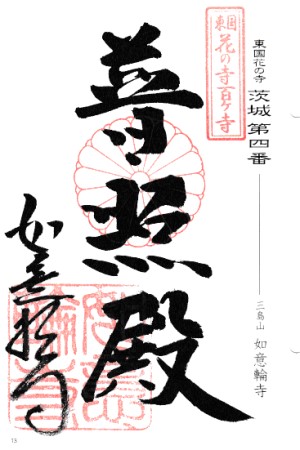 東国花の寺 茨城 第四番
三島山 如意輪寺
東国
花の寺百ヶ寺
普照殿
如意輪寺
75